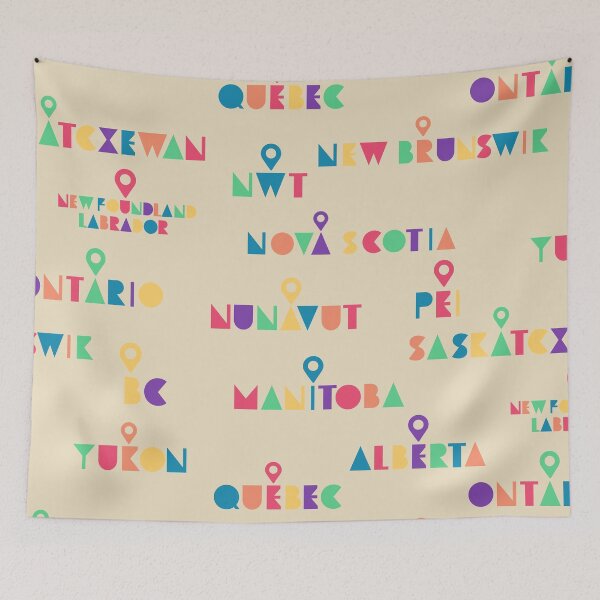 QUÉBEC
ONTA
ATCXEWAN
NEW BRUNSWIK
NWT
NEW FOUNDLAND
LABRADOR
NOVA SCOTIA
YU
ONTARIO
NUNAVUT
PEI
SWIK
SASKATCX
BC
MANITOBA
NEW FO
LABR
YUKON
ALBERTA
QUÉBEC
ONTA